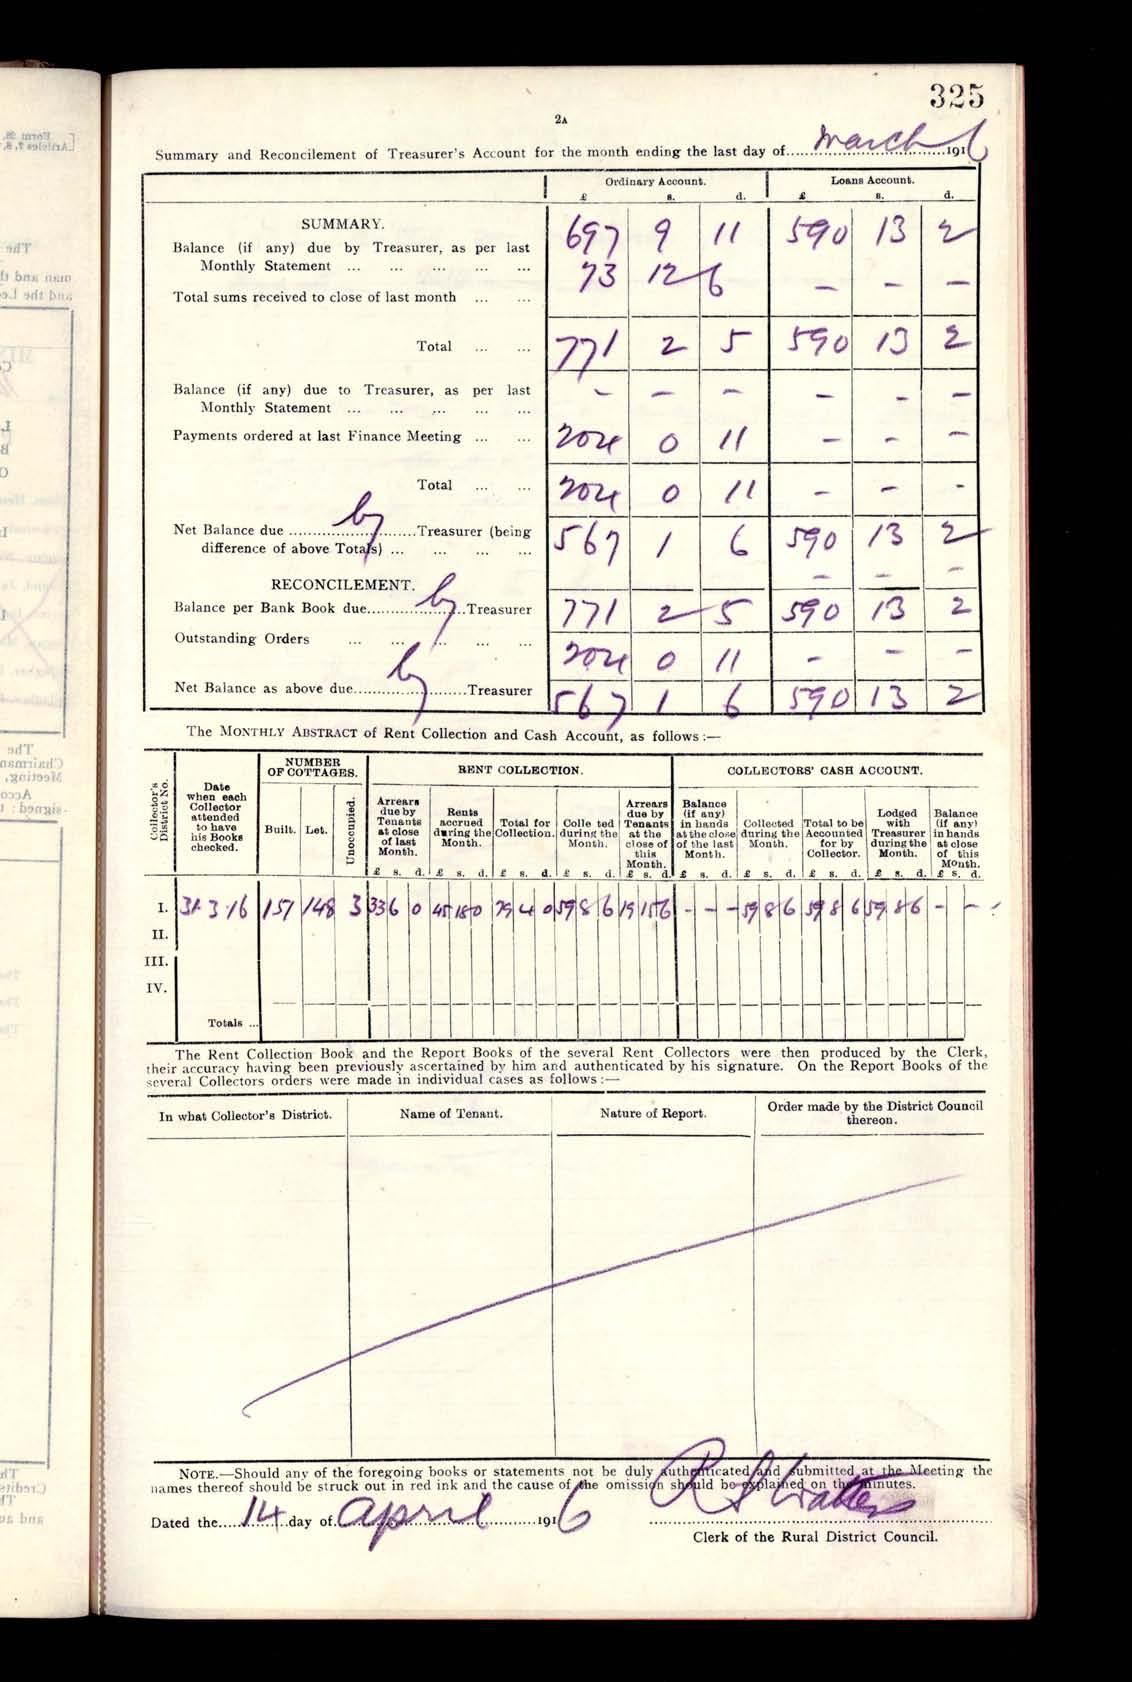 325
2A
Summary and Reconcilement of Treasurer's Account for the month ending the last day of March 1916
Ordinary Account. Loans Account.
£ s. d. £ s. d.
SUMMARY.
Balance (if any) due by Treasurer, as per last
Monthly Statement ... ... ... ... ... 697 9 11 590 13 2
Total sums received to close of last month ... ... 73 12 6 — — —
Total ... ... 771 2 5 590 13 2
Balance (if any) due to Treasurer, as per last
Monthly Statement ... ... ... ... ... — — — — — —
Payments ordered at last Finance Meeting ... ... 204 0 11 — — —
Total ... ... 204 0 11 — — -
Net Balance due by Treasurer (being
difference of above Totals) ... ... ... ... 567 1 6 590 13 2
— — —
RECONCILEMENT.
Balance per Bank Book due by Treasurer 771 2 5 590 13 2
Outstanding Orders ... ... ... ... ... 204 0 11 — — —
Net Balance as above due by Treasurer 567 1 6 590 13 2
The MONTHLY ABSTRACT of Rent Collection and Cash Account, as follows :—
Collector's District No.
Date when each Collector attended to have his Books checked.
NUMBER OF COTTAGES.
Built. Let. Unoccupied.
RENT COLLECTION.
Arrears due by Tenants at close of last Month. £ s. d.
Rents accrued during the Month. £ s. d.
Total for Collection. £ s. d.
Colle ted during the Month. £ s. d.
Arrears due by Tenants at the close of this Month. £ s. d.
COLLECTORS' CASH ACCOUNT.
Balance (if any) in hands at the close of the last Month. £ s. d.
Collected during the Month. £ s. d.
Total to be Accounted for by Collector. £ s. d.
Lodged with Treasurer during the Month. £ s. d.
Balance (if any) in hands at close of this Month. £ s. d.
I. 31.3.16 151 148 3 33 6 0 45 18 0 79 4 0 59 8 6 19 15 6 - - - 59 8 6 59 8 6 59 8 6 - - -
II.
III.
IV.
Totals ...
The Rent Collection Book and the Report Books of the several Rent Collectors were then produced by the Clerk,
their accuracy having been previously ascertained by him and authenticated by his signature. On the Report Books of the
several Collectors orders were made in individual cases as follows :—
In what Collector's District. Name of Tenant. Nature of Report. Order made by the District Council thereon.
NOTE.—Should any of the foregoing books or statements not be duly authenticated and submitted at the Meeting the
names thereof should be struck out in red ink and the cause of the omission should be explained on the minutes.
Dated the 14 day of April 1916
Clerk of the Rural District Council.